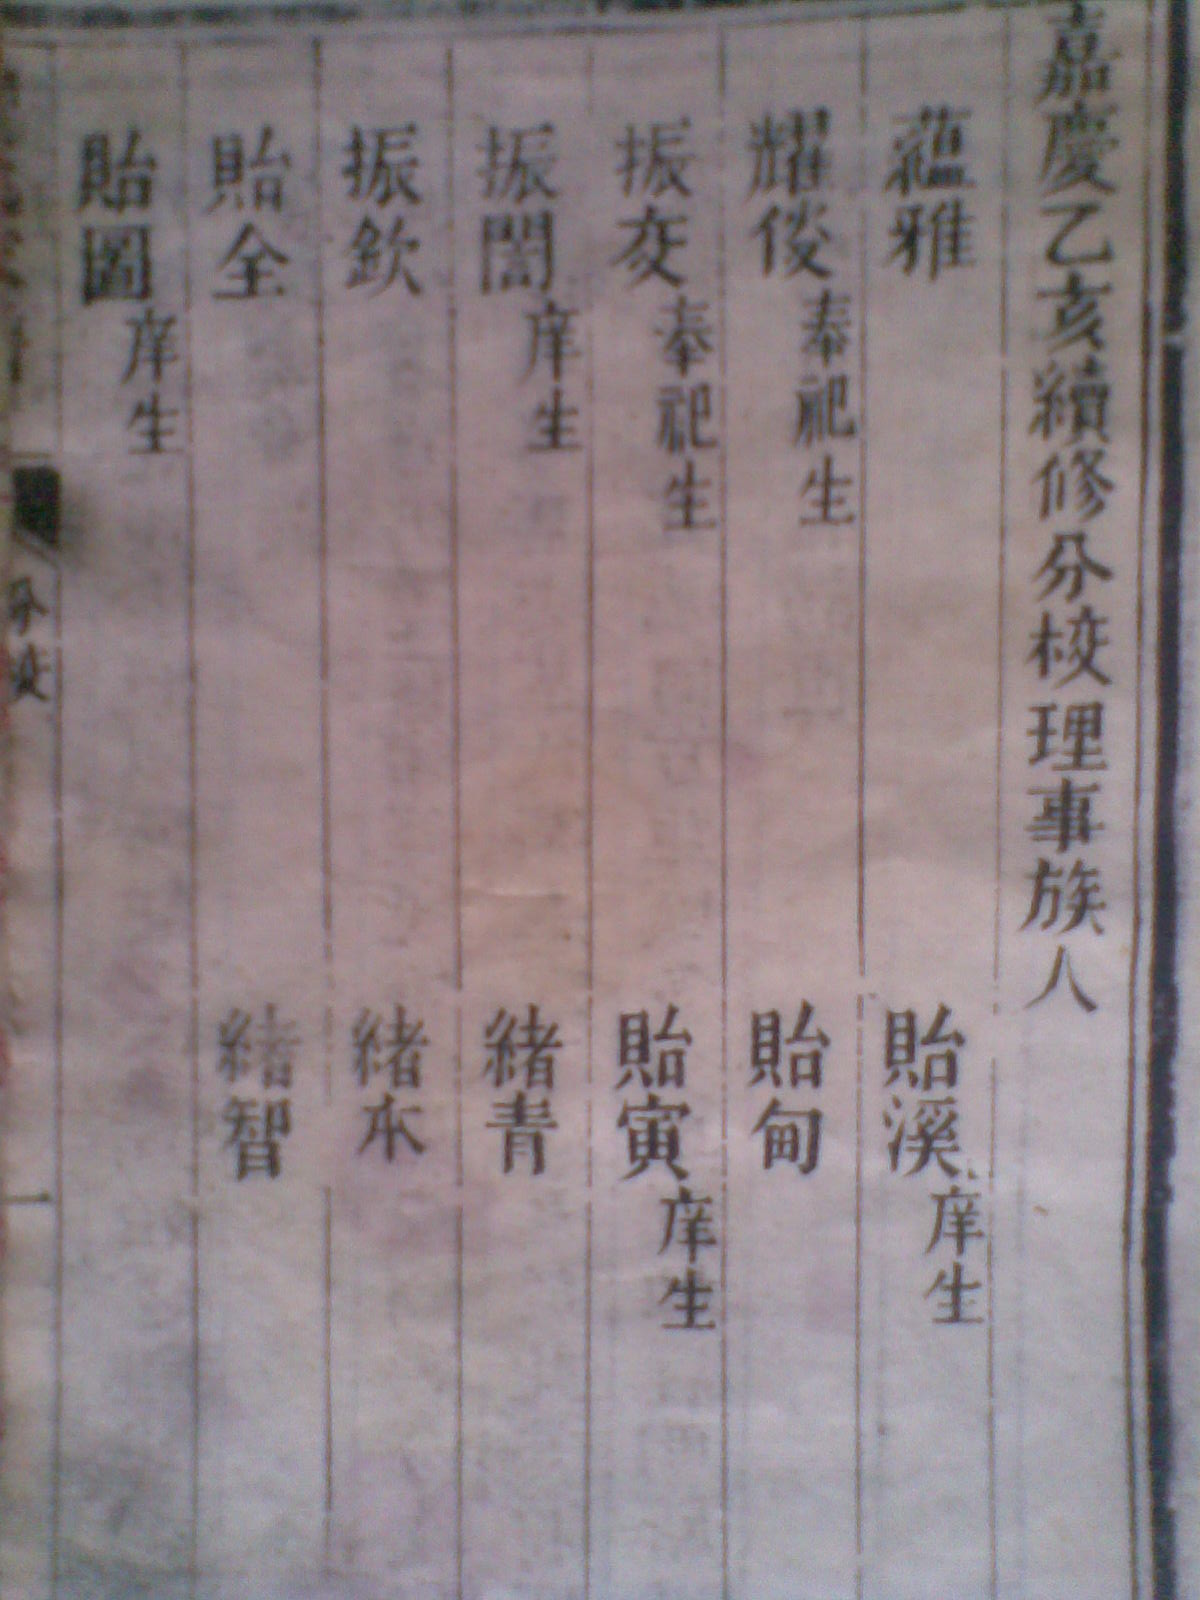 嘉慶乙亥續修分校理事族人
蘊雅
貽溪庠生
耀俊奉祀生
貽甸
振交奉祀生
貽寅庠生
振誾庠生
緒青
振欽
緒本
貽全
緒智
貽圖庠生
分校
一